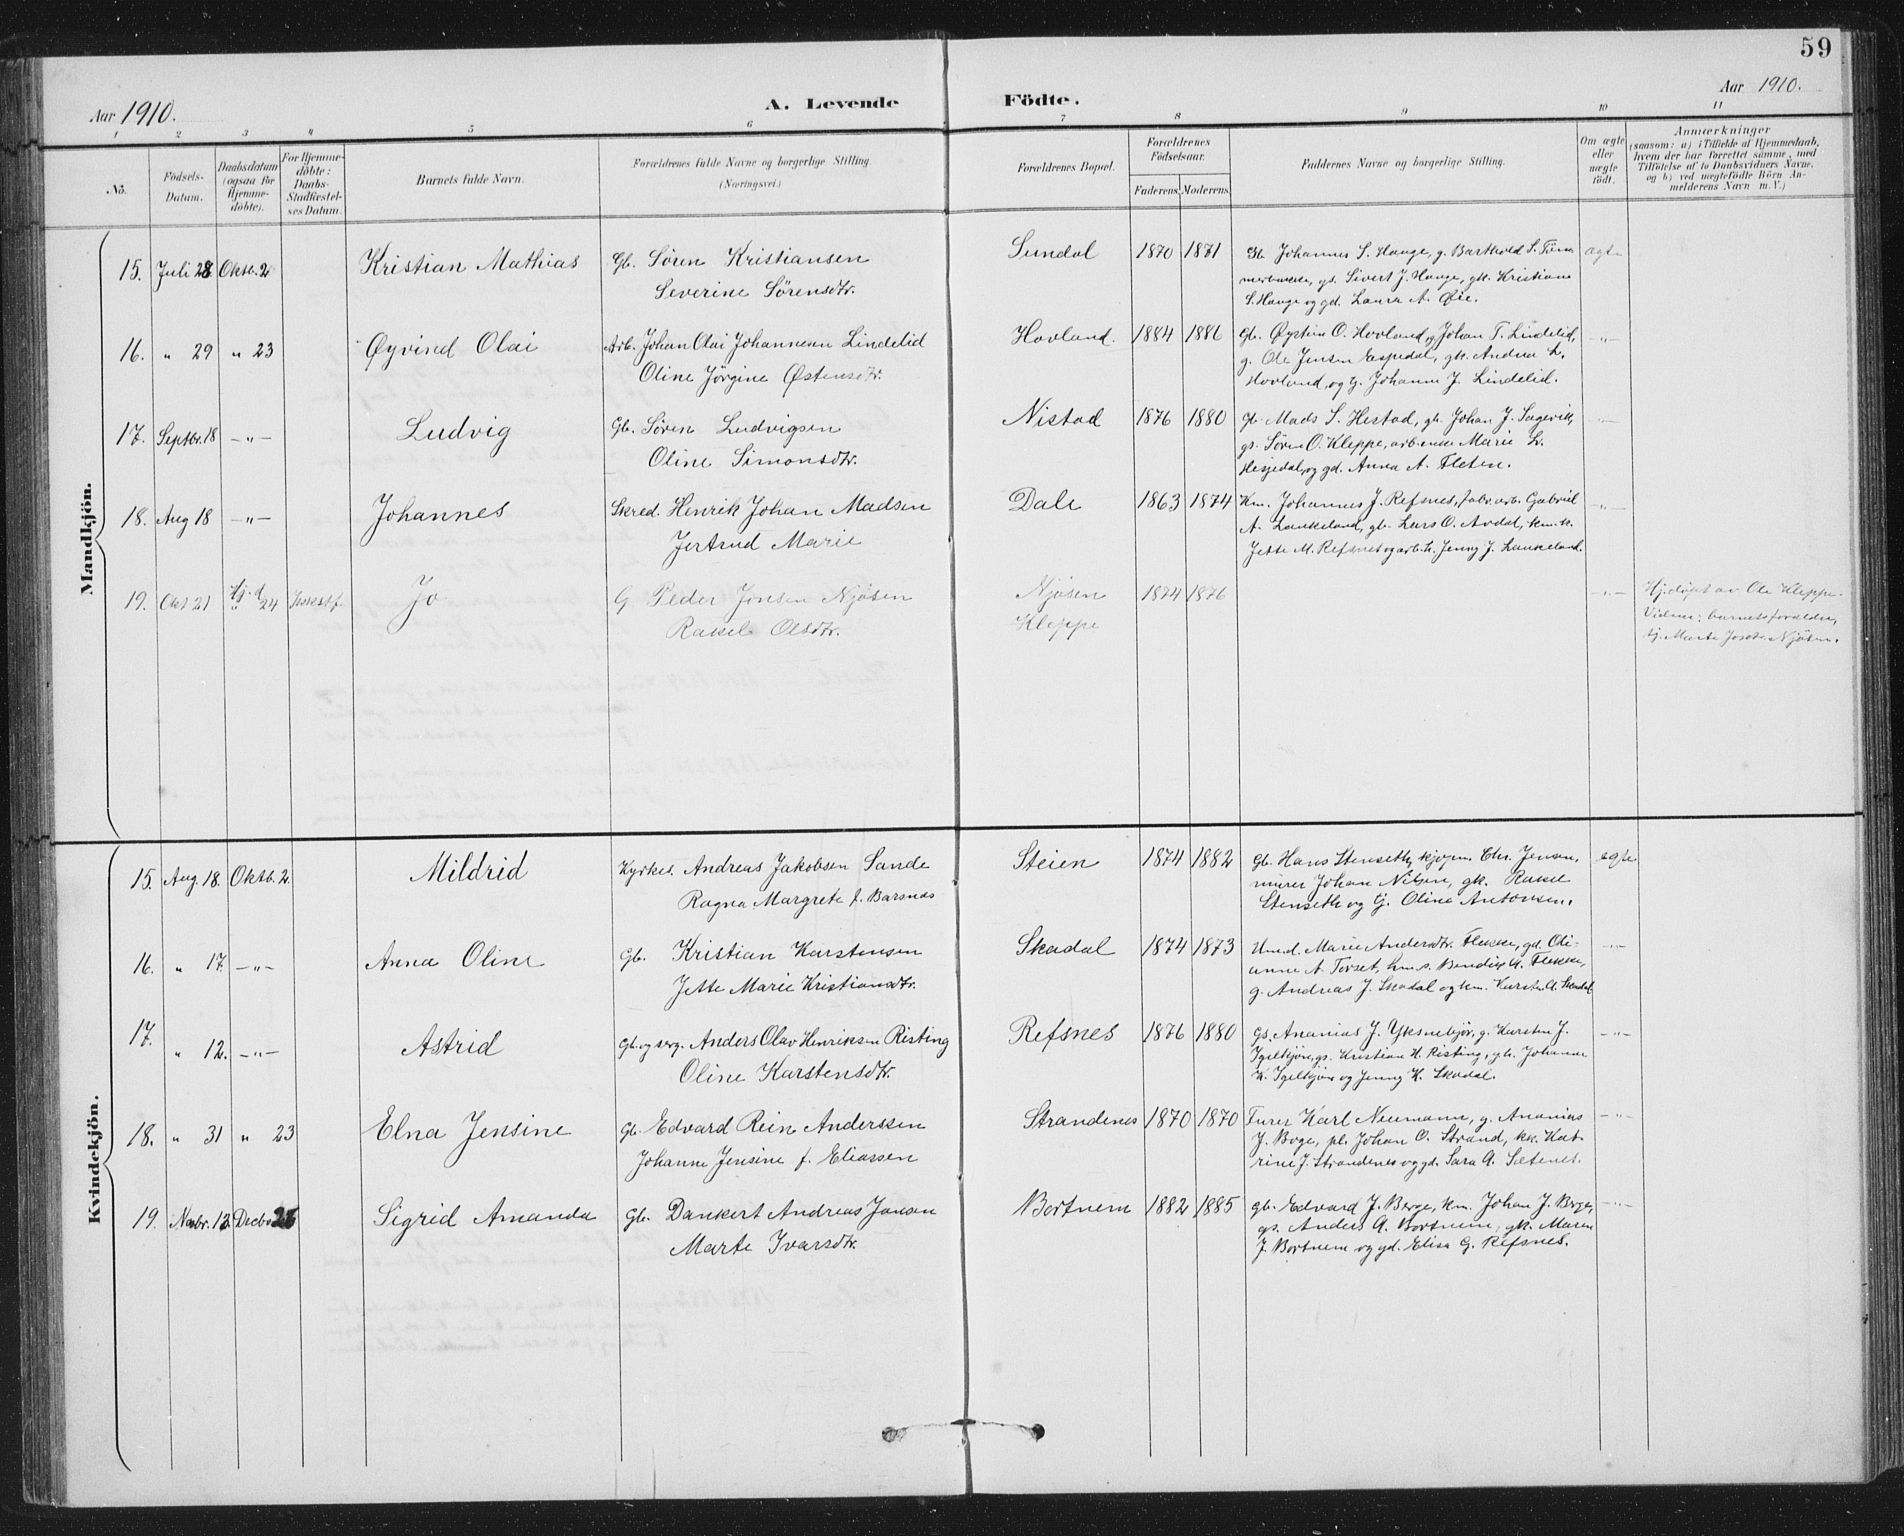 59
Aar 1910.
A. Levende Födte.
Aar 1910.
1 2 3 4 5 6 7 8 9 10 11
No.
Födsels-
Datum.
Daabsdatum
(ogsaa for
Hjemme-
döbte).
For Hjemme-
döbte:
Daabs-
Stadfæstel-
ses Datum.
Barnets fulde Navn.
Forældrenes fulde Navne og borgerlige Stilling.
(Næringsvei.)
Forældrenes Bopæl.
Forældrenes
Födselsaar.
Faderens. Moderens.
Faddernes Navne og borgerlige Stilling.
Om ægte
eller
uægte
födt.
Anmærkninger
(saasom: a) i Tilfælde af Hjemmedaab,
hvem der har forrettet samme, med
Tilföielse af to Daabsvidners Navne,
og b) ved uægtefödte Börn An-
melderens Navn m. V.)
Mandkjön.
15. Juli 28 Oktb. 2 Kristian Mathias Gb. Søren Kristiansen
Severine Sørensdtr.
Sundal 1870 1871
Gb. Johannes S. Hauge, g. Barthold S. Tøm
merbakke, gs. Sivert J. Hauge, gk. Kristiane
S. Hauge og gd. Laura A. Øie.
ægte
16. " 29 " 23 Øyvind Olai Arb. Johan Olai Johannesen Lindelid
Oline Jörgine Østensdtr.
Hovland. 1884 1886
Gb. Øystein O. Hovland, g. Johan T. Lindelid,
g. Ole Jensen Espedal, gk. Andrea L.
Hovland, og G. Johanne J. Lindelid.
-"-
17. Septbr. 18 -"- Ludvig Gb. Søren Ludvigsen
Oline Simonsdtr.
Nistad 1876 1880
Gb. Mads S. Hestad, gb. Johan J. Sagevik,
gs. Søren O. Kleppe, arb.enke Marie L.
Hesjedal, og gd. Anna A. Fleten.
-"-
18. Aug 18 -"- Johannes Skred. Henrik Johan Madsen
Jertrud Marie
Dale 1863 1874
Km. Johannes J. Refsnes, fabr.arb. Gabriel
A. Laukeland, gb. Lars O. Avdal, km.k.
Jette M. Refsnes og arb.k. Jenny J. Laukeland.
-"-
19. Okt 21 24 Jo G. Peder Jonsen Njösen
Rakel Olsdtr.
Njösen
Kleppe
1874 1876
-"-
Hj.döpt av Ole Kleppe.
Vidner: barnets foreldre,
tj. Marte Josdtr. Njösen.
Kvindekjön.
15. Aug. 18. Oktb. 2. Mildrid Kyrkes. Andreas Jakobsen Sande
Ragna Margrete f. Barsnes
Steien 1874 1882
Gb. Hans Stenseth, kjøpm. Chr. Jensen,
murer Johan Nilsen, gk. Rakel
Stenseth og G. Oline Antonsen.
ægte
16. " 17. -"- Anna Oline Gb. Kristian Karstensen
Jette Marie Kristiansdtr.
Skadal 1874 1873
Um.d. Marie Andersdtr. Flekke, gd. Oli-
anne A. Torset, km.s. Bendik K. Flekke,
g. Andreas J. Skadal og km. Karsten A. Skadal
-"-
17. " 12. -"- Astrid Gb. og serg. Anders Olav Henriksen Risting
Oline Karstensdtr.
Refsnes 1876 1880
Gs. Ananias J. Yksnebjör, g. Karsten J.
Igelkjøn, gs. Kristian H. Risting, gk. Johanne
K. Igelkjøn og Jenny K. Skadal.
-"-
18. " 31 " 23 Elna Jensine Gb. Edvard Rein Anderssen
Johanne Jensine f. Eliassen
Strandenes 1870 1870
Furer Karl Neumann, g. Ananias
J. Boge, pl. Johan O. Strand, kk. Kat-
rine J. Strandenes og gd. Sara A. Sætenes.
-"-
19. Novbr. 12. Decbr. 26 Sigrid Amanda Gb. Dankert Andreas Jonsen
Marte Ivarsdtr.
Bortnem 1882 1885
Gb. Edvard J. Berge, km. Johan J. Berge,
gs. Anders A. Bortnem, gk. Maren
J. Bortnem og gd. Elisa G. Refsnes.
-"-